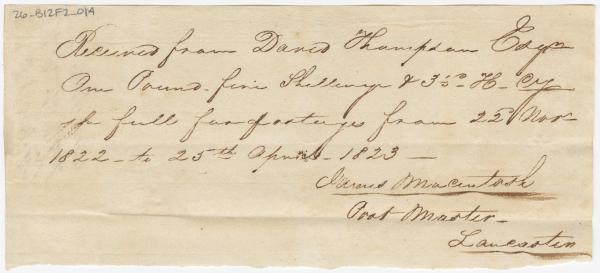 26-B12F2_014
Received from David Thompson Esqr
One Pound five Shillings & 3½d H-Cy
in full for postages from 22d Novr
1822 - to 25th April - 1823 -
James Macintosh
Post Master -
Lancaster